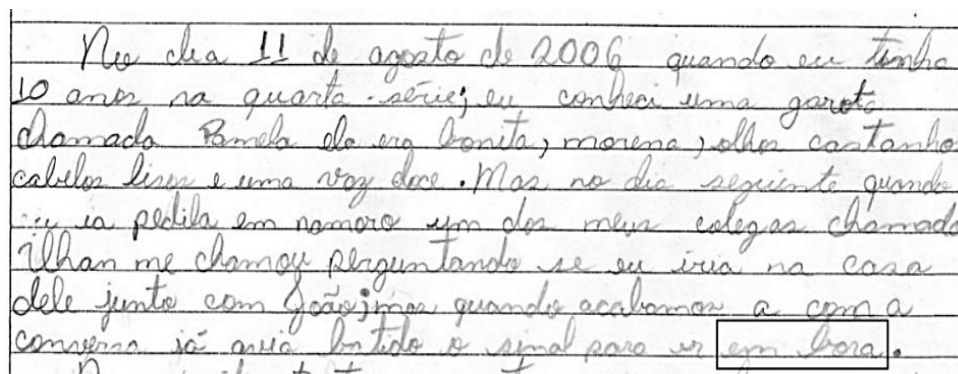 No dia 11 de agosto de 2006 quando eu tinha
10 anos na quarta-série; eu conheci uma garota
chamada Pamela ela era bonita, morena, olhos castanhos
cabelos lisos e uma voz doce. Mas no dia seguinte quando
eu ia pedila em namoro um dos meus colegas chamado
Ilhan me chamou perguntando se eu iria na casa
dele junto com João; mas quando acabamos a com a
conversa já avia batido o sinal para ir em bora.